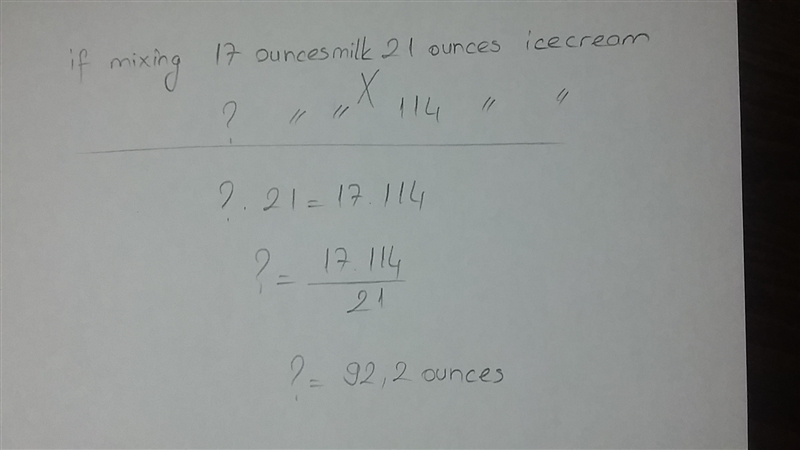 if mixing 17 ounces milk 21 ounces icecream
? " " X 114 " "
? . 21 = 17 . 114
? = 17 . 114
21
? = 92,2 ounces